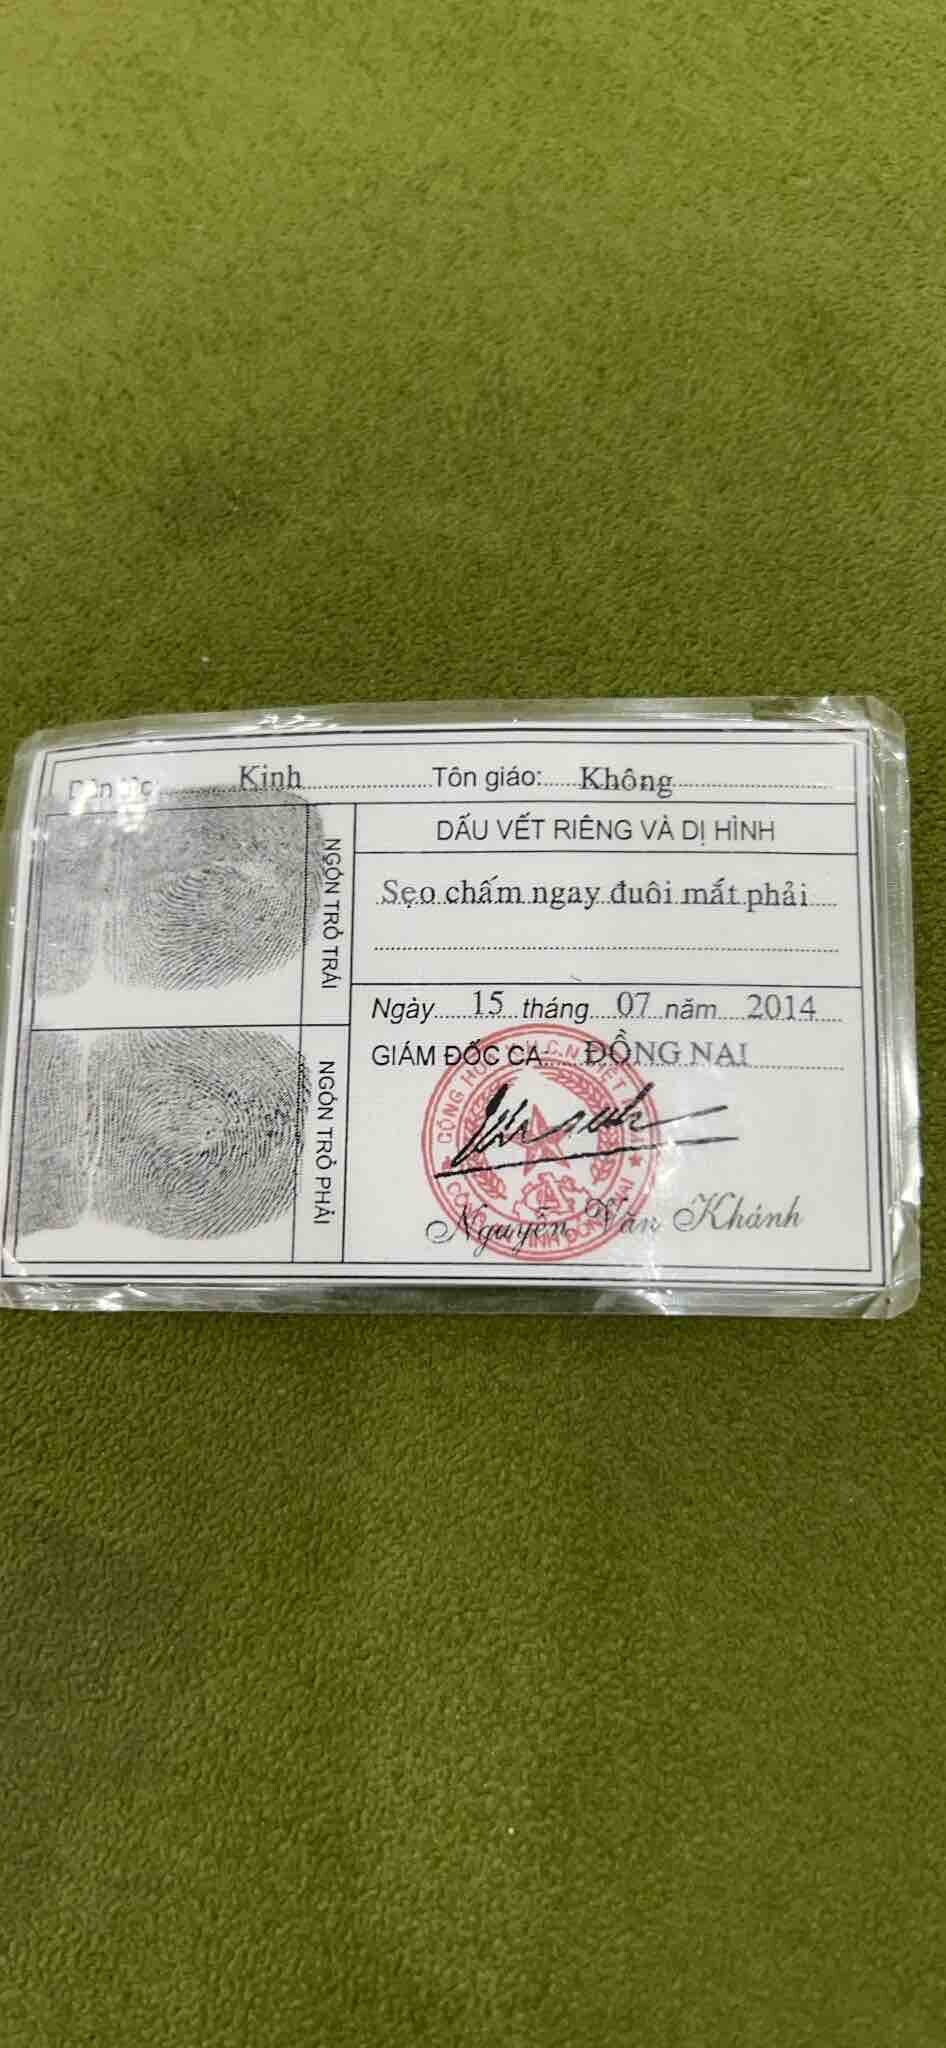 Dân tộc: Kinh Tôn giáo: Không
DẤU VẾT RIÊNG VÀ DỊ HÌNH
NGÓN TRỎ TRÁI
Sẹo chấm ngay đuôi mắt phải
Ngày 15 tháng 07 năm 2014
GIÁM ĐỐC CA ĐỒNG NAI
NGÓN TRỎ PHẢI
Nguyễn Văn Khánh